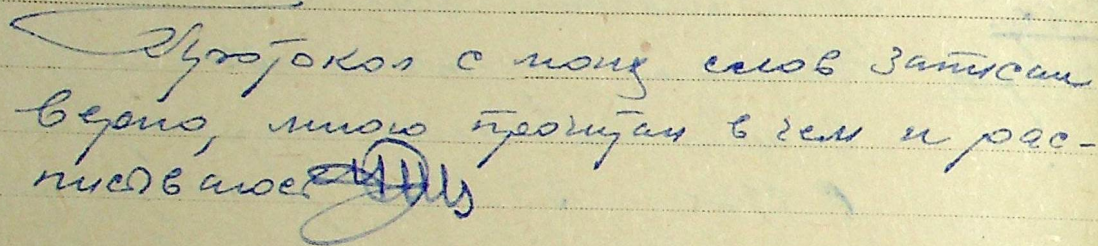 Протокол с моих слов записан
верно, мною прочитан в чем и рас-
писываюсь